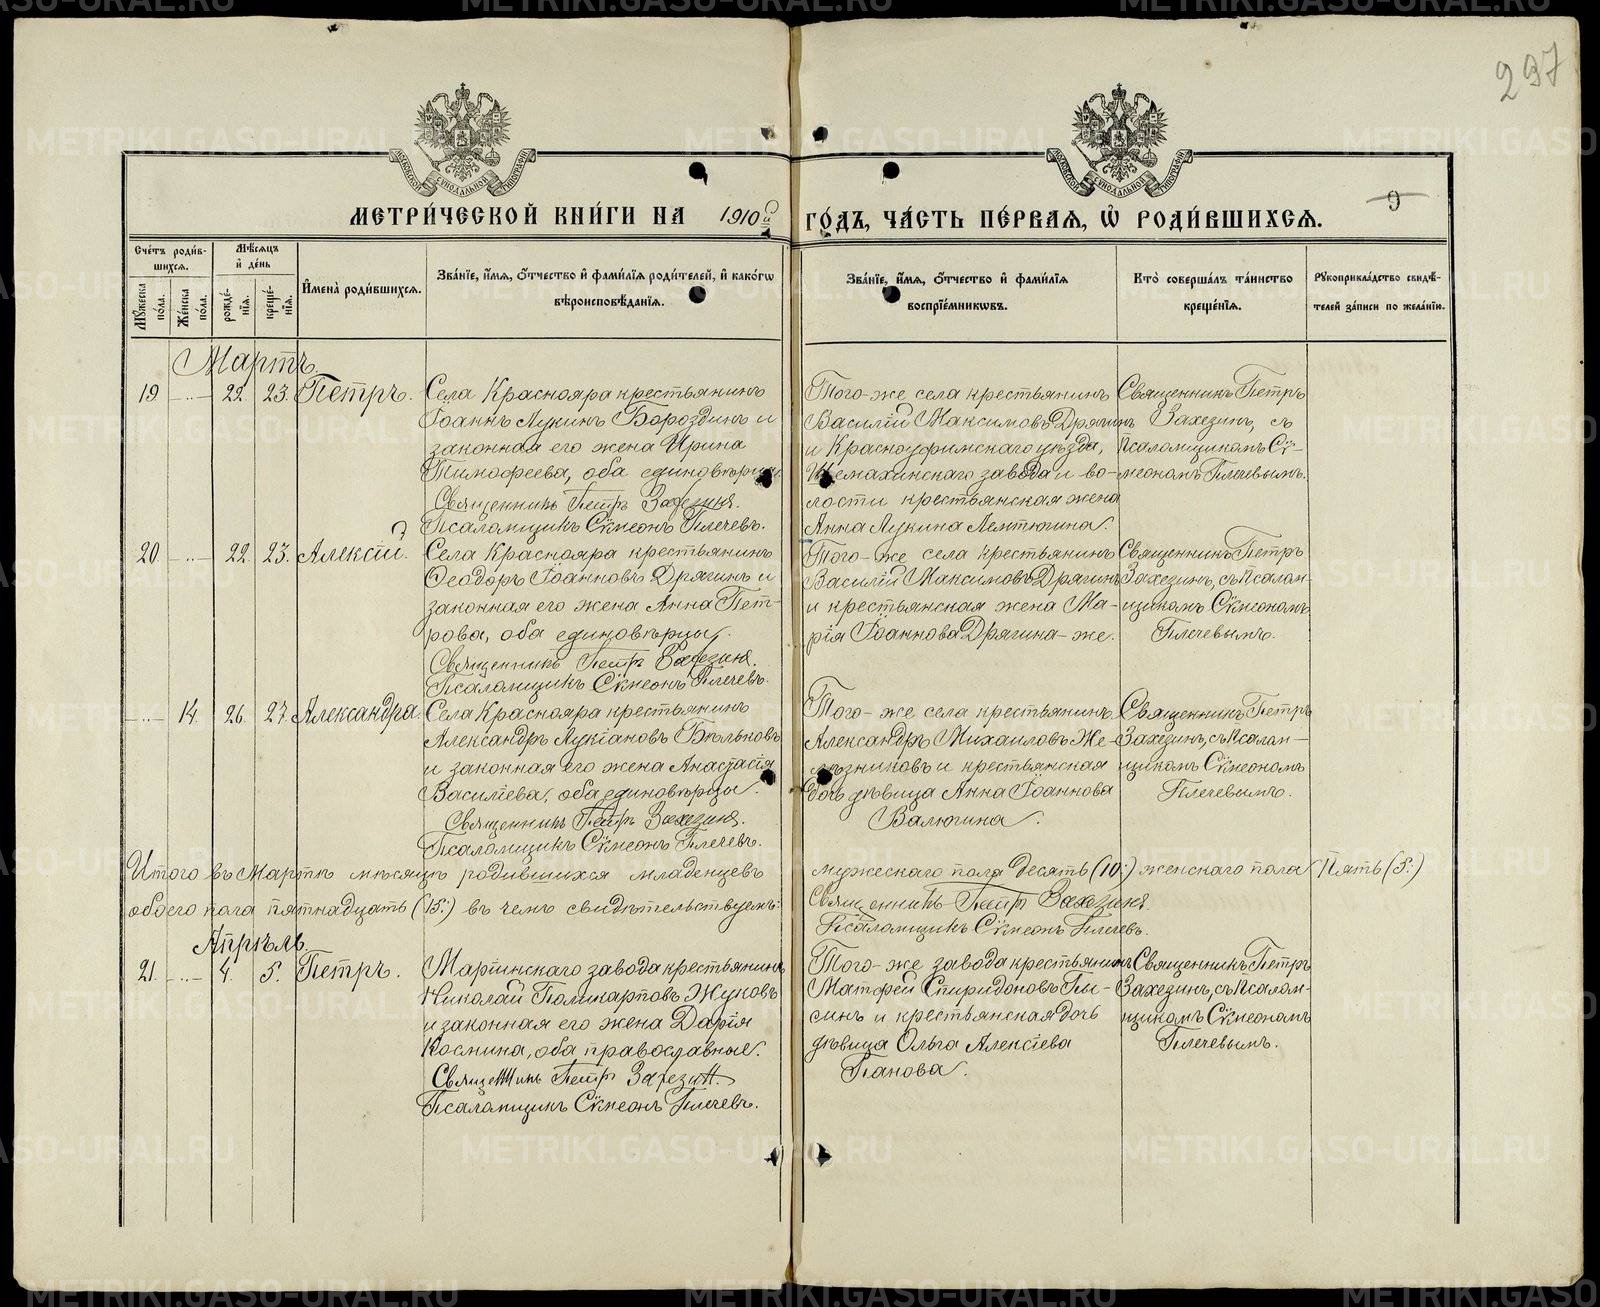 297
9
МЕТРИ́ЧЕСКОЙ КНИ́ГИ НА 1910й ГО́ДЪ, ЧА́СТЬ ПЕ́РВАЯ, Ѡ҆ РОДИ́ВШИХСЯ.
Сче́тъ роди́в-
шихся.
Мꙋ́жеска по́ла.
Же́нска по́ла.
Мѣ́сяцъ
и҆ де́нь
рожде́-
нїя.
креще́-
нїя.
И҆мена̀ роди́вшихся.
Зва́нїе, и҆́мя, ѻ҆́тчество и҆ фами́лїя роди́телей, и҆ како́гѡ
вѣроисповѣ́данїя.
Зва́нїе, и҆́мя, ѻ҆́тчество и҆ фами́лїя
воспрїе́мникѡвъ.
Кто̀ соверша́лъ та́инство
креще́нїя.
Рꙋкоприкла́дство свидѣ́-
телей за́писи по жела́нїю.
Мартъ.
19 -..- 22. 23. Петръ.
Села Краснояра крестьянинъ
Іоаннъ Лукинъ Бороздинъ и
законная его жена Ирина
Тимофеева, оба единовѣрцы.
Священникъ Петръ Захезинъ.
Псаломщикъ Сѵмеонъ Плечевъ.
Того-же села крестьянинъ
Василій Максимовъ Дрягинъ
и Красноуфимскаго уѣзда,
Шемахинскаго завода и во-
лости крестьянская жена
Анна Лукина Лемтюгина.
Священникъ Петръ
Захезинъ, съ
Псаломщикомъ Сѵ-
меономъ Плечевымъ.
20 -..- 22. 23. Алексій.
Села Краснояра крестьянинъ
Ѳеодоръ Іоанновъ Дрягинъ и
законная его жена Анна Пет-
рова, оба единовѣрцы.
Священникъ Петръ Захезинъ.
Псаломщикъ Сѵмеонъ Плечевъ.
Того-же села крестьянинъ
Василій Максимовъ Дрягинъ
и крестьянская жена Ма-
рія Іоаннова Дрягина-же.
Священникъ Петръ
Захезинъ, съ Псалом-
щикомъ Сѵмеономъ
Плечевымъ.
-..- 14. 26. 27. Александра.
Села Краснояра крестьянинъ
Александръ Лукіановъ Бѣльковъ
и законная его жена Анастасія
Василіева, оба единовѣрцы.
Священникъ Петръ Захезинъ.
Псаломщикъ Сѵмеонъ Плечевъ.
Того-же села крестьянинъ
Александръ Михаиловъ Же-
лѣзниковъ и крестьянская
дочь дѣвица Анна Іоаннова
Валюгина.
Священникъ Петръ
Захезинъ, съ Псалом-
щикомъ Сѵмеономъ
Плечевымъ.
Итого въ Мартѣ мѣсяцѣ родившихся младенцевъ мужескаго пола десять (10:) женскаго пола Пять (5:)
обоего пола пятнадцать (15:) въ чемъ свидѣтельствуемъ:
Священникъ Петръ Захезинъ.
Псаломщикъ Сѵмеонъ Плечевъ.
Апрѣль.
21. -..- 4. 5. Петръ.
Маріинскаго завода крестьянинъ
Николай Поликарповъ Жуковъ
и законная его жена Дарія
Космина, оба православные.
Священникъ Петръ Захезинъ.
Псаломщикъ Сѵмеонъ Плечевъ.
Того-же завода крестьянинъ
Матфей Спиридоновъ Пы-
синъ и крестьянская дочь
дѣвица Ольга Алексіева
Панова.
Священникъ Петръ
Захезинъ, съ Псалом-
щикомъ Сѵмеономъ
Плечевымъ.
METRIKI.GASO-URAL.RU